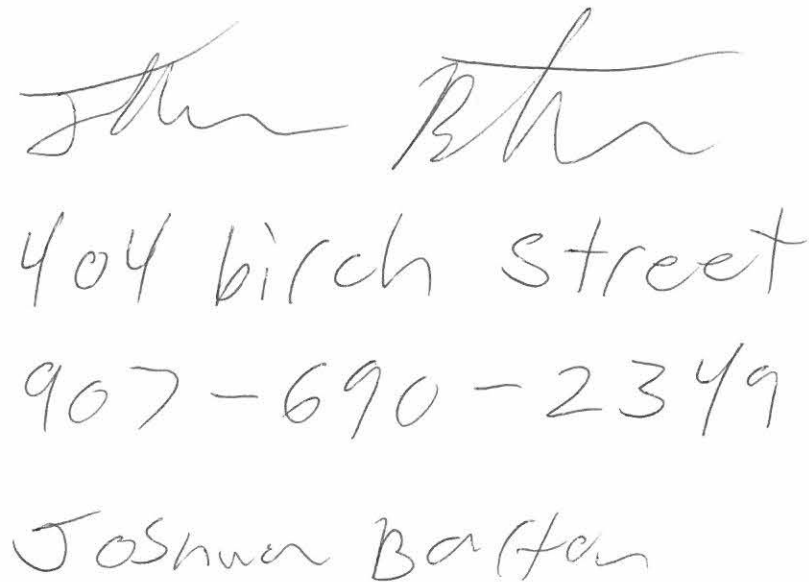 404 birch street
907-690-2349
Joshua Barton